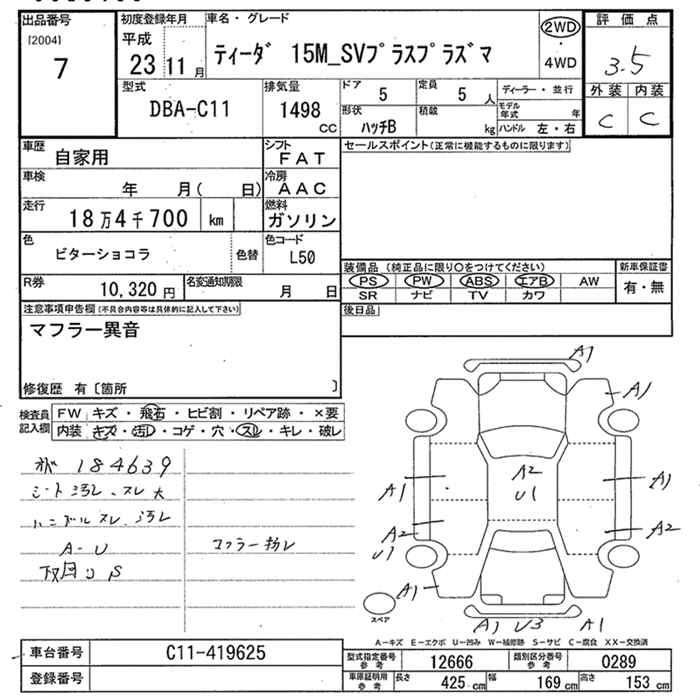 出品番号 初度登録年月 車名・グレード 2WD 評価点
[2004] 平成 ティーダ 15M_SVプラスプラズマ ・ 3.5
7 23 11月 4WD
型式 排気量 ドア 定員 ディーラー・並行 外装 内装
DBA-C11 1498 cc 5 5人 モデル年式 年 C C
形状 ハッチB 積載 kg ハンドル 左・右
車歴 自家用 シフト FAT セールスポイント(正常に機能するものに限ります)
車検 年 月( 日) 冷房 AAC
走行 18万4千700 km 燃料 ガソリン
色 ビターショコラ 色替 色コード L50
装備品 (純正品に限り○をつけてください) 新車保証書
R券 10,320円 名変通知期限 月 日 PS PW ABS エアB AW 有・無
SR ナビ TV カワ
注意事項申告欄(不具合内容等は具体的に記入して下さい) 後日品
マフラー異音
修復歴 有〔箇所 〕
検査員記入欄 FW キズ・飛石・ヒビ割・リペア跡・×要
内装 キズ・汚レ・コゲ・穴・スレ・キレ・破レ
184639
シート汚レ、スレ 大
ハンドルスレ、汚レ
A-U マフラー
下回り S
A1
A1
A2
U1
A1 A1
A2 A2
U1
A1
スペア
A1 U3 A1
A-キズ E-エクボ U-凹み W-補修跡 S-サビ C-腐食 XX-交換済
車台番号 C11-419625 型式指定番号参考 12666 類別区分番号参考 0289
登録番号 車庫証明用参考 長さ 425cm 幅 169cm 高さ 153cm